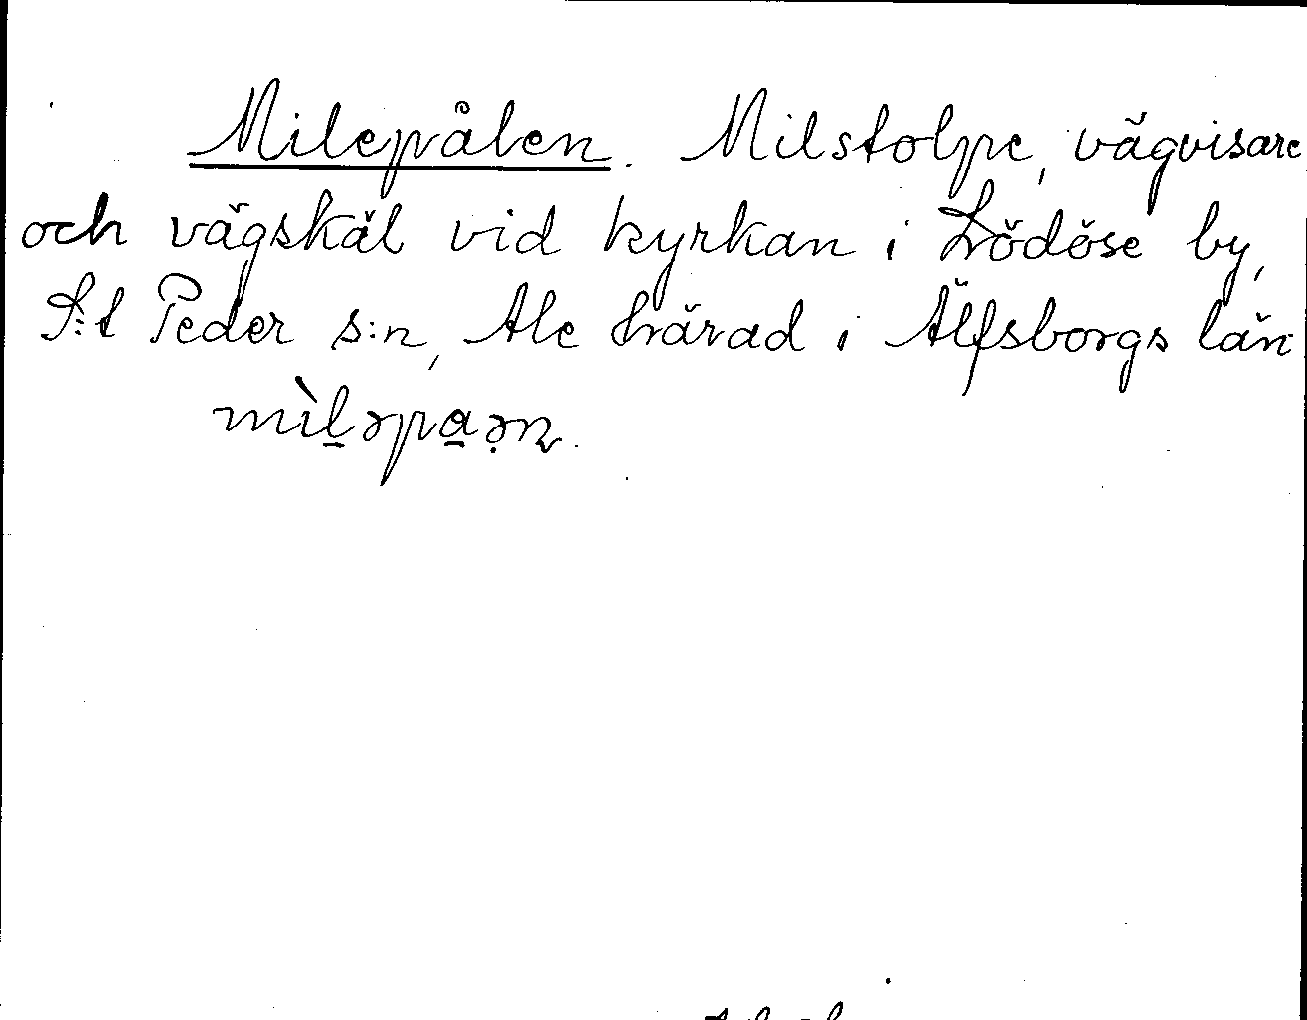 Milepålen. Milstolpe, vägvisare
och vägskäl vid kyrkan i Lödöse by,
S:t Peder s:n, Ale härad i Älfsborgs län
mìl̠əpa̠ə̣n.